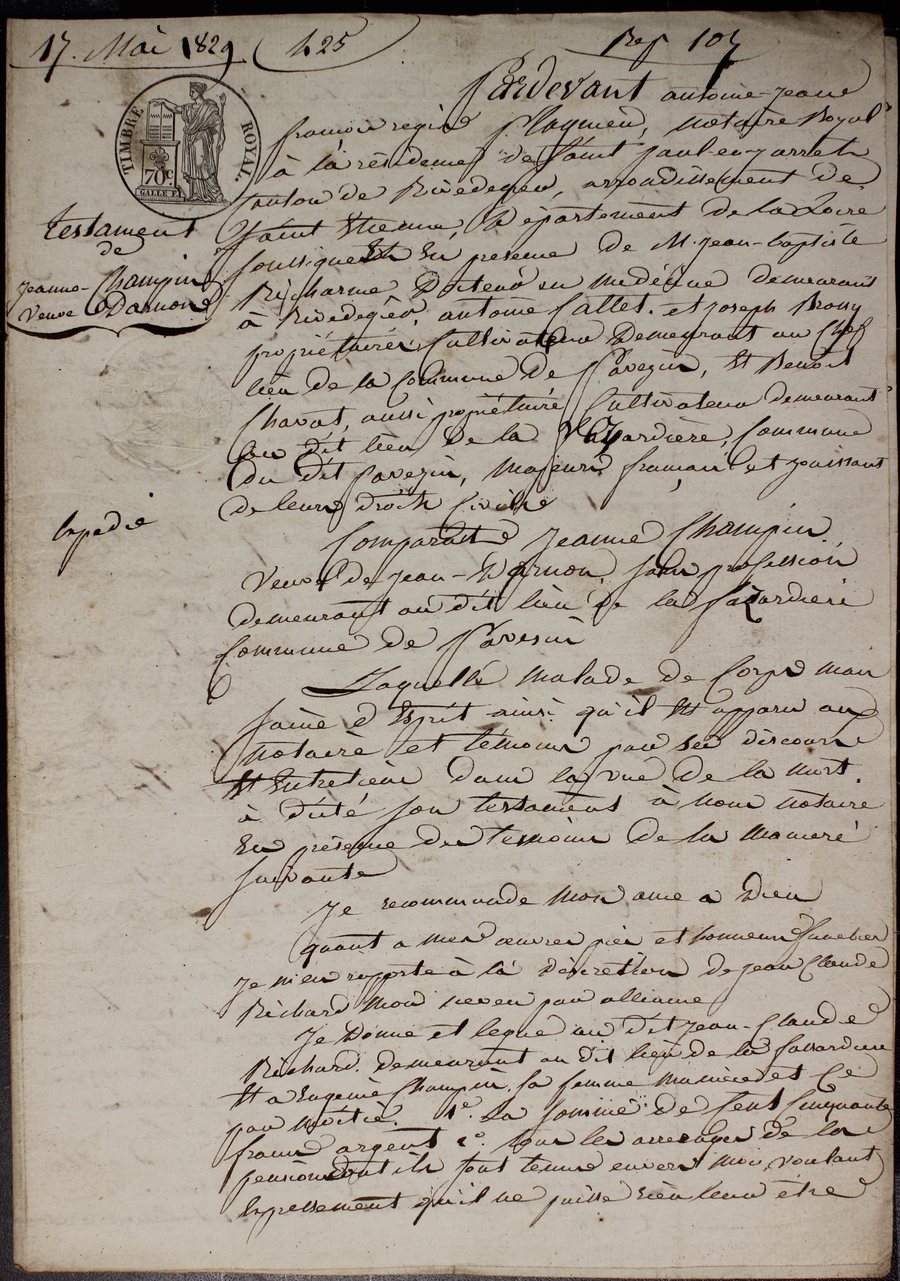 17. Mai 1829
125
Rep 107
TIMBRE ROYAL.
70c
GALLE F.
testament
de
Jeanne Champin
Veuve Darnon
Expedié
Pardevant antoine-Jean
françois regis notaire Royal
à la résidence de Saint paul-en-jarret
Canton de Rivedegier, arrondissement de
Saint Etienne, Département de la Loire
soussigné Et En présence de M. jean-baptiste
Richarme Docteur en médecine demeurant
à Rivedegier, antoine Callet, et joseph
propriétaires Cultivateurs Demeurant au Chef
lieu de la Commune de Pavezin, Et Benoit
Chavas, aussi propriétaire Cultivateur demeurant
au dit lieu de la Commune
du dit Pavezin, Majeurs français et jouissant
de leurs droits Civils
Comparait Jeanne Champin
Veuve de jean-Darnon, sans profession
demeurant au dit lieu de la
Commune de Pavesin
Laquelle malade de Corps mais
saine d'Esprit ainsi qu'il Est apparu aux
notaire et témoins par ses discours
Et Entretien dans la vue de la mort.
à dicté son testament à nous notaire
En présence des temoins de la maniere
suivante
Je recommande mon ame a Dieu
quant a mes œuvres pies et honneurs funebres
je m'en rapporte à la discretion de jean Claude
Richard mon neveu par alliance
Je Donne et legue au dit jean-Claude
Richard demeurant au dit lieu de la
Et a Eugenie Champin sa femme et Ce
par moitié. 1o. La somme de Cent Cinquante
francs argent 2o. tous les arrerages de la
pension dont ils sont tenus envers moi, voulant
Expressement qu'il ne puisse rien leur être